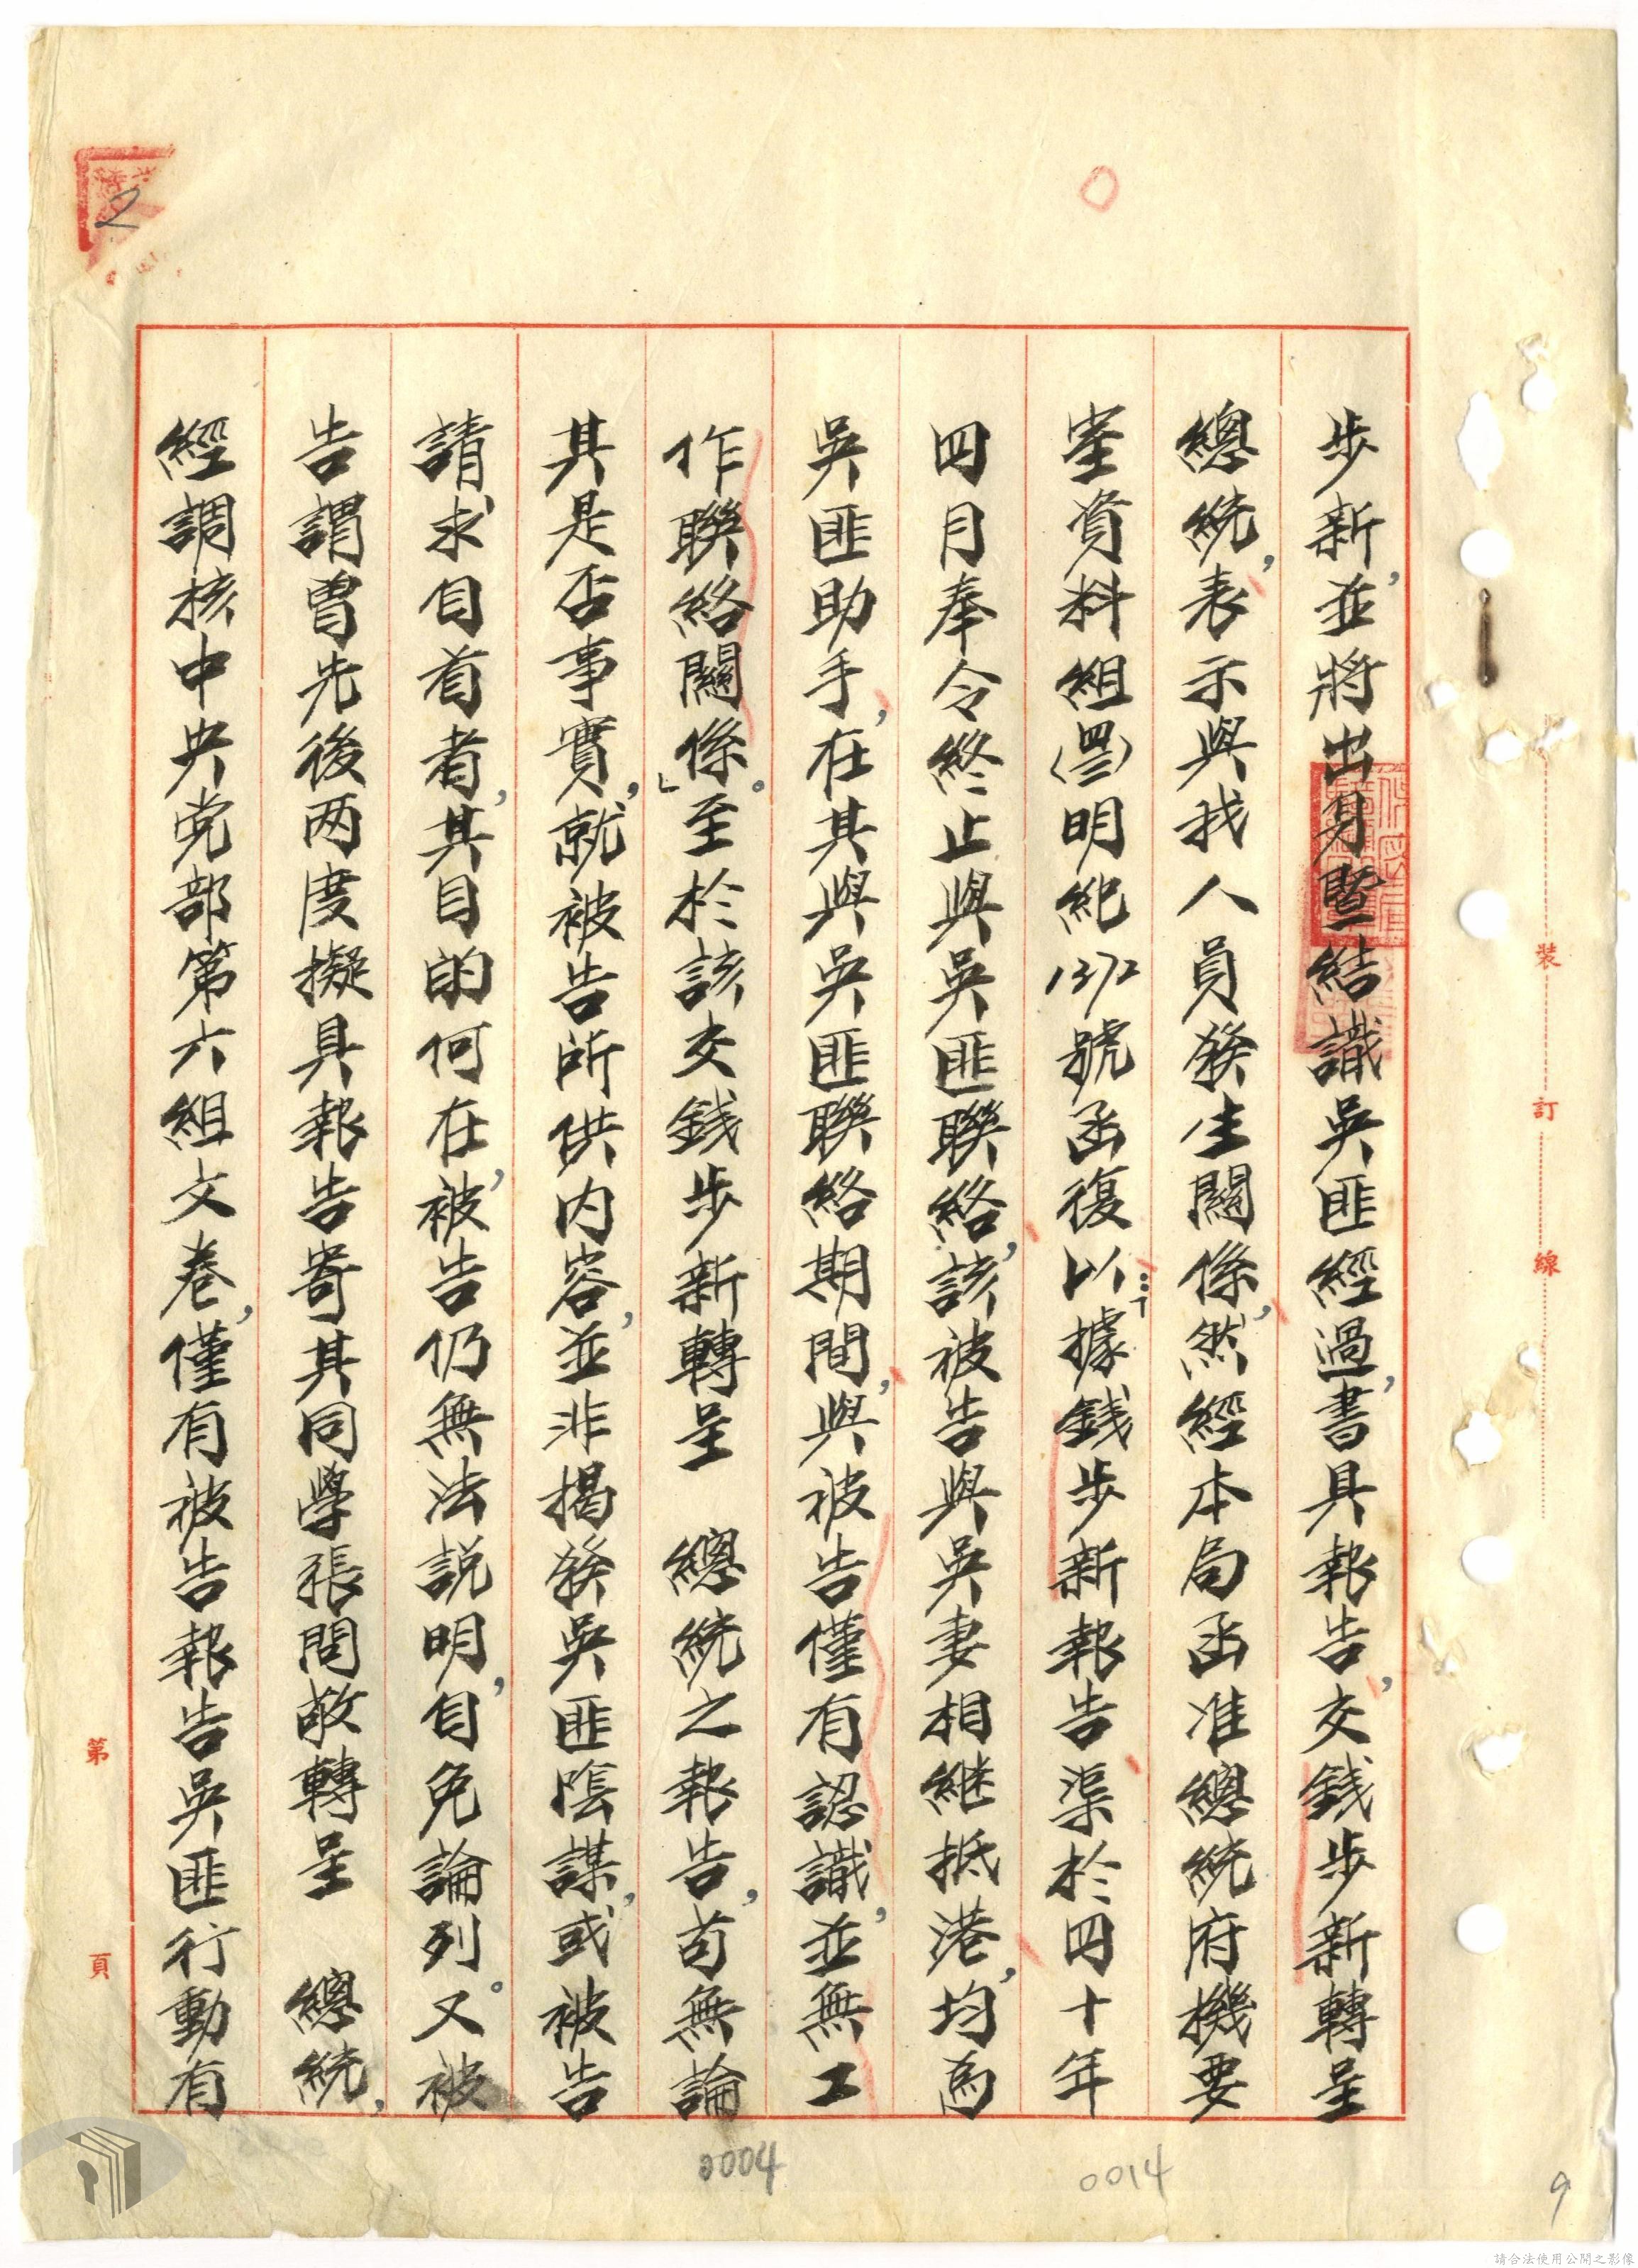 步新，並將出身暨結識吳匪經過，書具報告，交錢步新轉呈
總統，表示與找人員發生關係，然經本局函准總統府機要
室資料組(四三)明紀1372號函復以：「據錢步新報告渠於四十年
四月奉令終止與吳匪聯絡，該被告與吳妻相繼抵港，均為
吳匪助手，在其與吳匪聯絡期間，與被告僅有認識，並無工
作聯絡關係。」至於該交錢步新轉呈　總統之報告，茍無論
其是否事實，就被告所供內容，並非揭發吳匪陰謀，或被告
請求自首者，其目的何在，被告仍無法説明，自免論列。又被
告謂曾先後两度擬具報告寄其同學張問敬轉呈　總統，
經調核中央党部第六組文卷，僅有被告報告吳匪行動有
裝
訂
線
第
頁
2
0004
0014
9
請合法使用公開之影像